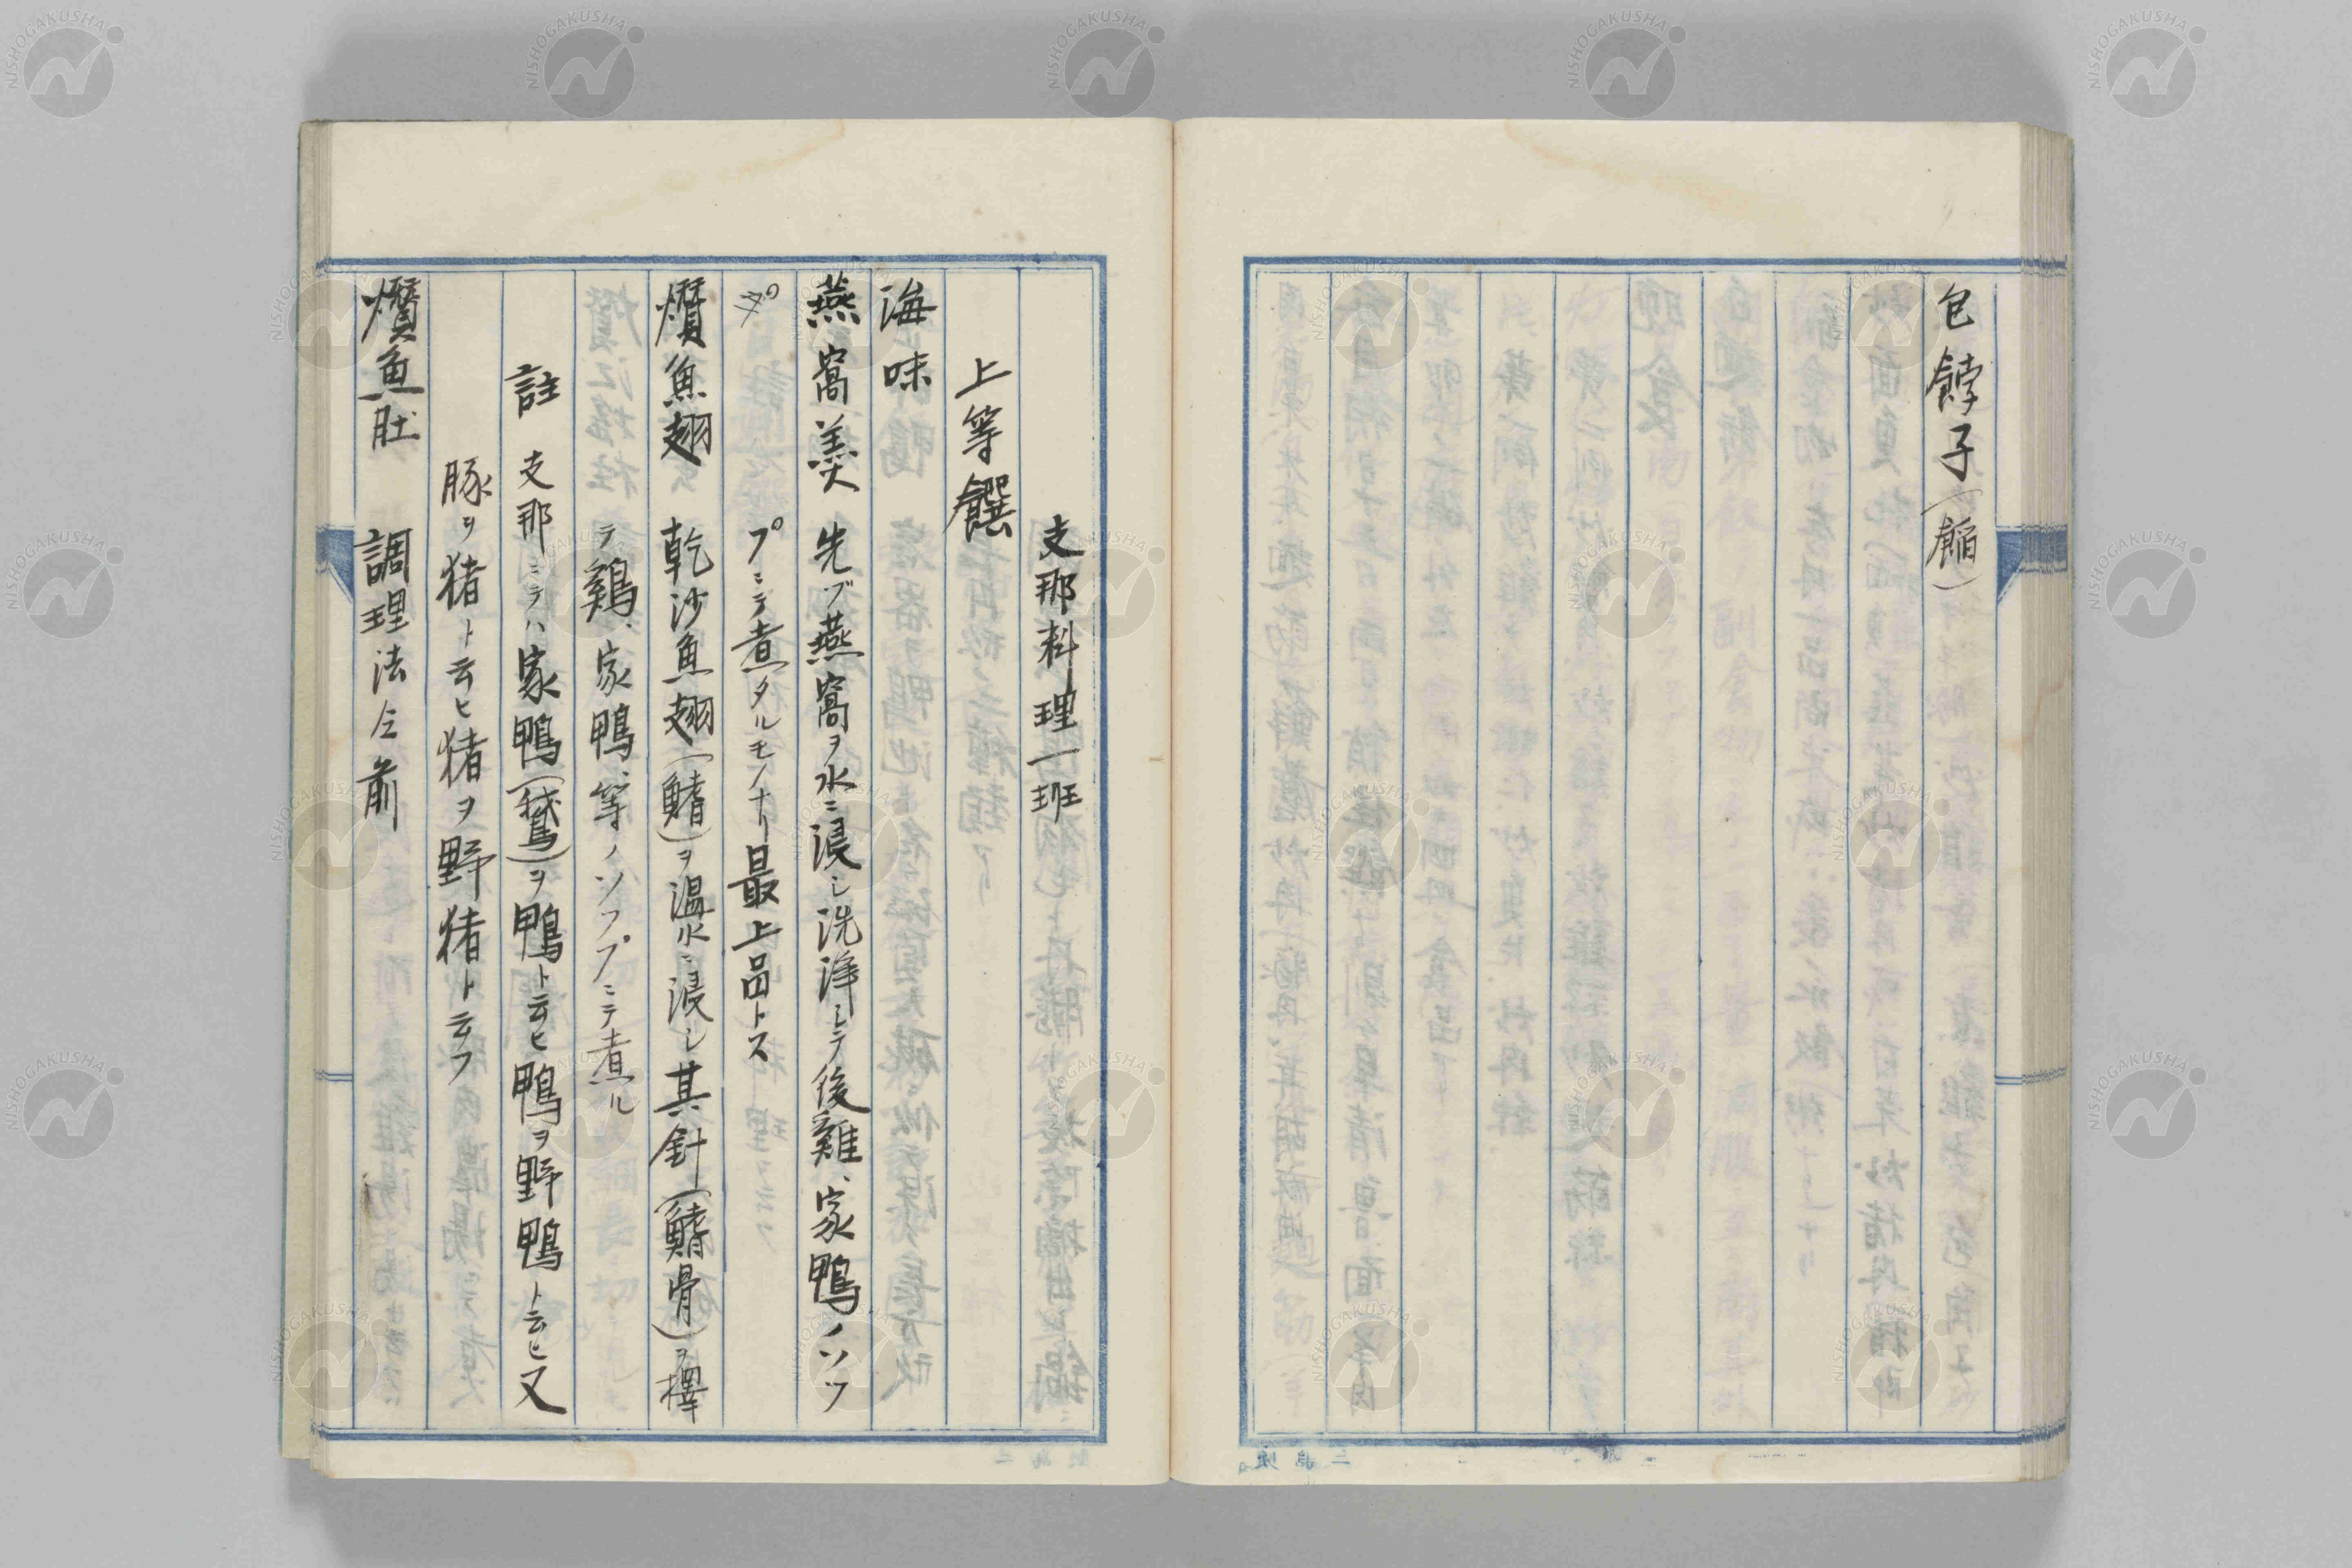 包餑子(餡)
支那料理一班
上等饌
海味
燕窩羹 先ヅ燕窩ヲ水ニ浸シ洗浄シテ後雞、家鴨ノソツ
プニテ煮タルモノナリ最上品トス
燌魚翅 乾沙魚翅(鰭)ヲ温水ニ浸シ其針(鰭骨)ヲ擇
テ鶏、家鴨、等ノソツプニテ煮ル
註 支那ニテハ家鴨(鵞)ヲ鴨ト云ヒ鴨ヲ野鴨ト云ヒ又
豚ヲ猪ト云ヒ猪ヲ野猪ト云フ
燌魚肚 調理法仝前
NISHOGAKUSHA